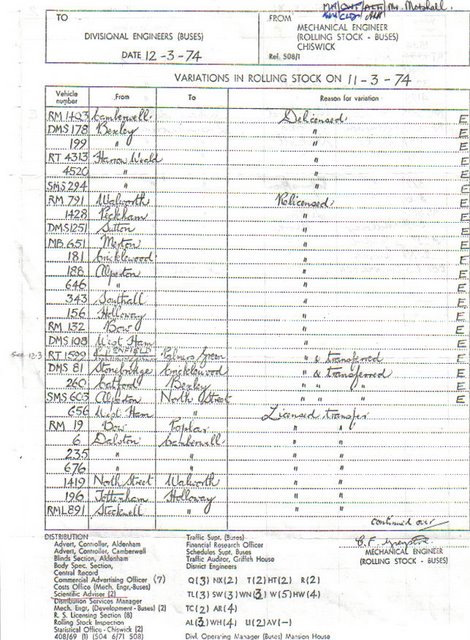 Mr. Marshall.
TO
FROM
DIVISIONAL ENGINEERS (BUSES)
MECHANICAL ENGINEER
(ROLLING STOCK - BUSES)
CHISWICK
DATE 12-3-74
Rel. 508/1
VARIATIONS IN ROLLING STOCK ON 11-3-74
Vehicle number From To Reason for variation
RM 1403 Camberwell Delicensed E
DMS 178 Bexley " E
199 " " E
RT 4313 Harrow Weald " E
4520 " " E
SMS 294 " " E
RM 791 Walworth Relicensed E
1428 Peckham " E
DMS 1251 Sutton " E
MB 651 Merton " E
181 Cricklewood " E
188 Alperton " E
646 " " E
343 Southall " E
156 Holloway " E
RM 132 Bow " E
DMS 108 West Ham " E
See 12-3 RT 1599 ENFIELD Palmers Green " & transferred E
DMS 81 Stonebridge Cricklewood " & transferred E
260 Catford Bexley " " " E
SMS 603 Alperton North Street " " " E
656 West Ham " Licensed transfer
RM 19 Bow Poplar " "
6 Dalston Camberwell " "
235 " " " "
676 " " " "
1419 North Street Walworth " "
196 Tottenham Holloway " "
RML 891 Stockwell " " "
continued over
MECHANICAL ENGINEER
(ROLLING STOCK - BUSES)
DISTRIBUTION
Advert, Controller, Aldenham
Advert, Controller, Camberwell
Blinds Section, Aldenham
Body Spec, Section,
Central Record
Commercial Advertising Officer (7)
Costs Office (Mech. Engr.-Buses)
Scientific Adviser (2)
Distribution Services Manager
Mech. Engr, (Development - Buses) (2)
R. S. Licensing Section (8)
Rolling Stock Inspection
Statistical Office (2)
408/69 (1) (504 6/71 508)
Traffic Supt. (Buses)
Financial Research Officer
Schedules Supt, Buses
Traffic Auditor, Griffith House
District Engineers
Q(3) NX(2) T(2) HT(2) R(2)
TL(3) SW(3) WN(3) W(5) HW(4)
TC(2) AR(4)
AL(3) WH(4) U(2) AV(-)
Divl. Operating Manager (Buses) Mansion House